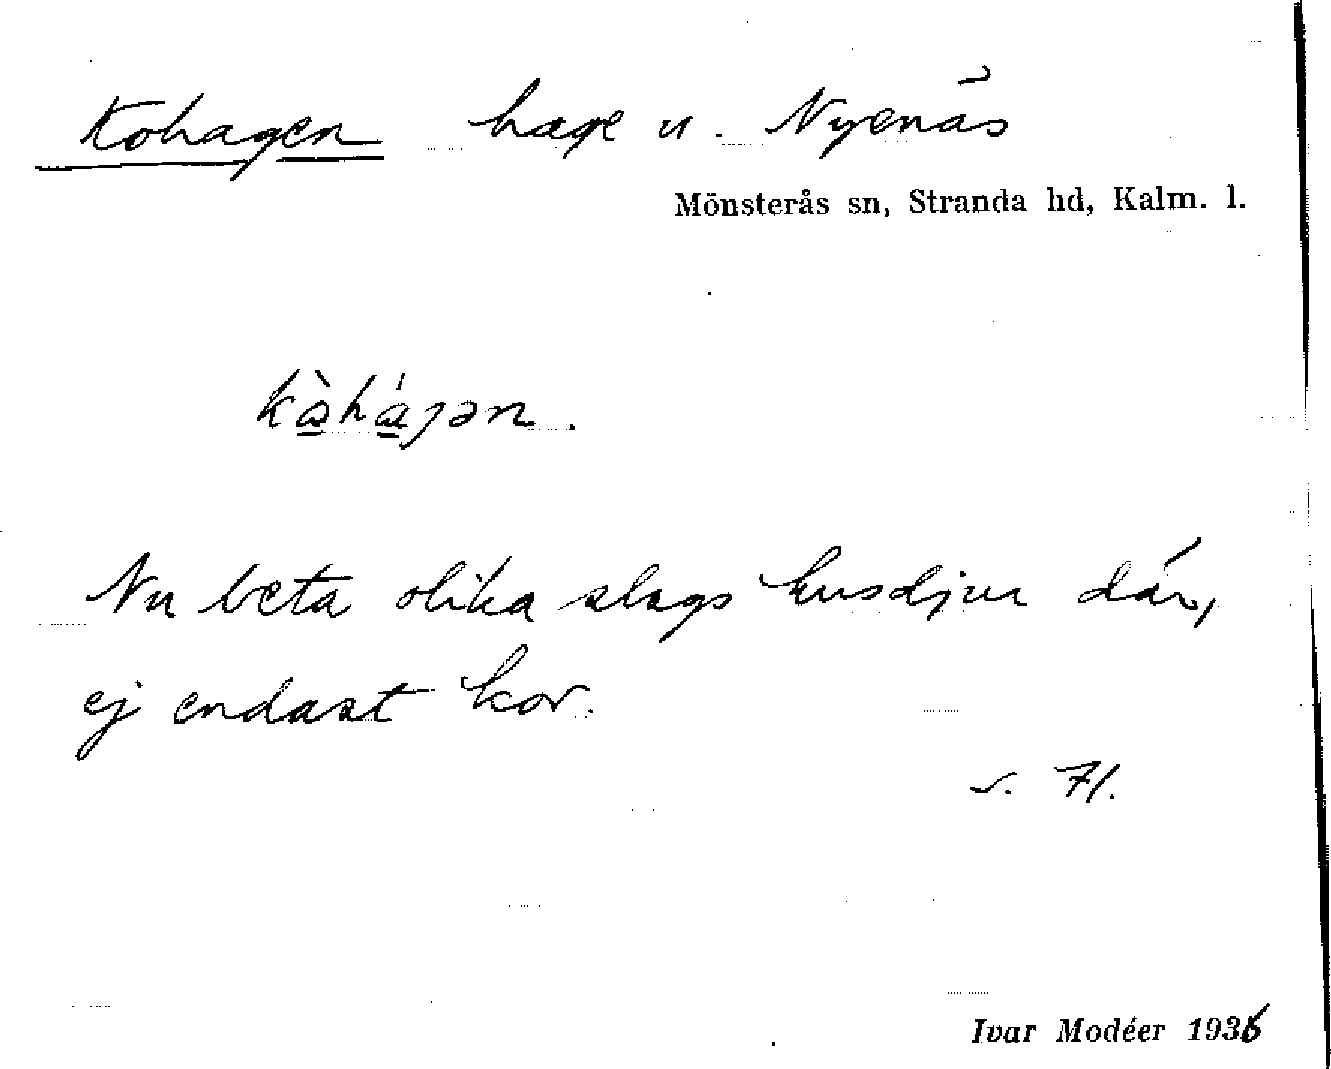 Kohagen hage u. Nyenäs
Mönsterås sn, Stranda hd, Kalm. l.
Nu beta olika slags husdjur där,
ej endast kor.
Ivar Modéer 1936